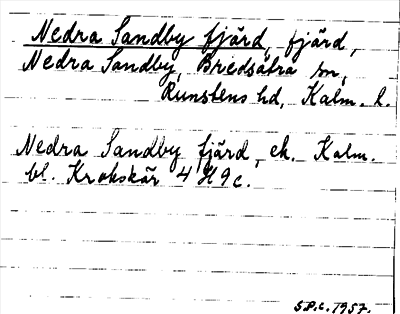 Nedra Sandby fjärd, fjärd,
Nedra Sandby, Bredsätra sn,
Runstens hd, Kalm. l.
Nedra Sandby fjärd, ek. Kalm.
bl. Krokskär 4 H 9 c.
S.P.C. 1957.